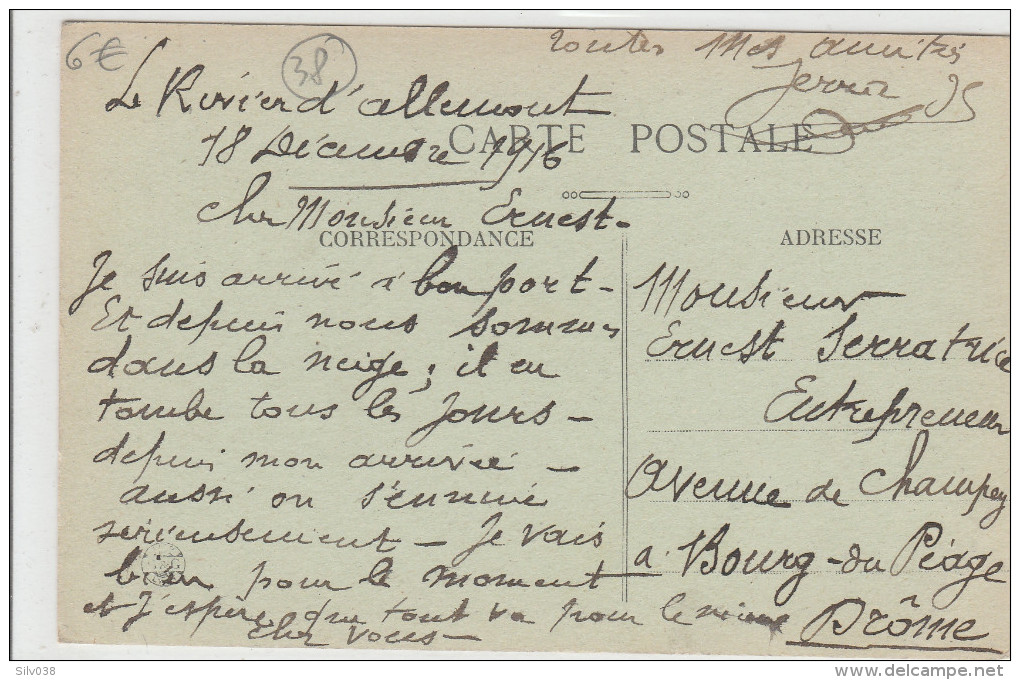 6€
38
toutes mes amitiés
Le Rivier d'allemont
18 Décembre 1916
CARTE POSTALE
cher Monsieur Ernest-
CORRESPONDANCE
Je suis arrivé à bon port-
Et depuis nous sommes
dans la neige; il en
tombe tous les jours-
depuis mon arrivée-
aussi on s'ennuie
serieusement - Je vais
bien pour le moment
et J'espère que tout va pour le mieux
chez vous-
ADRESSE
Monsieur
Ernest Serratrice
Entrepreneur
avenue de Champey
a Bourg-du Péage
Drôme
Silv038
www.delcampe.net